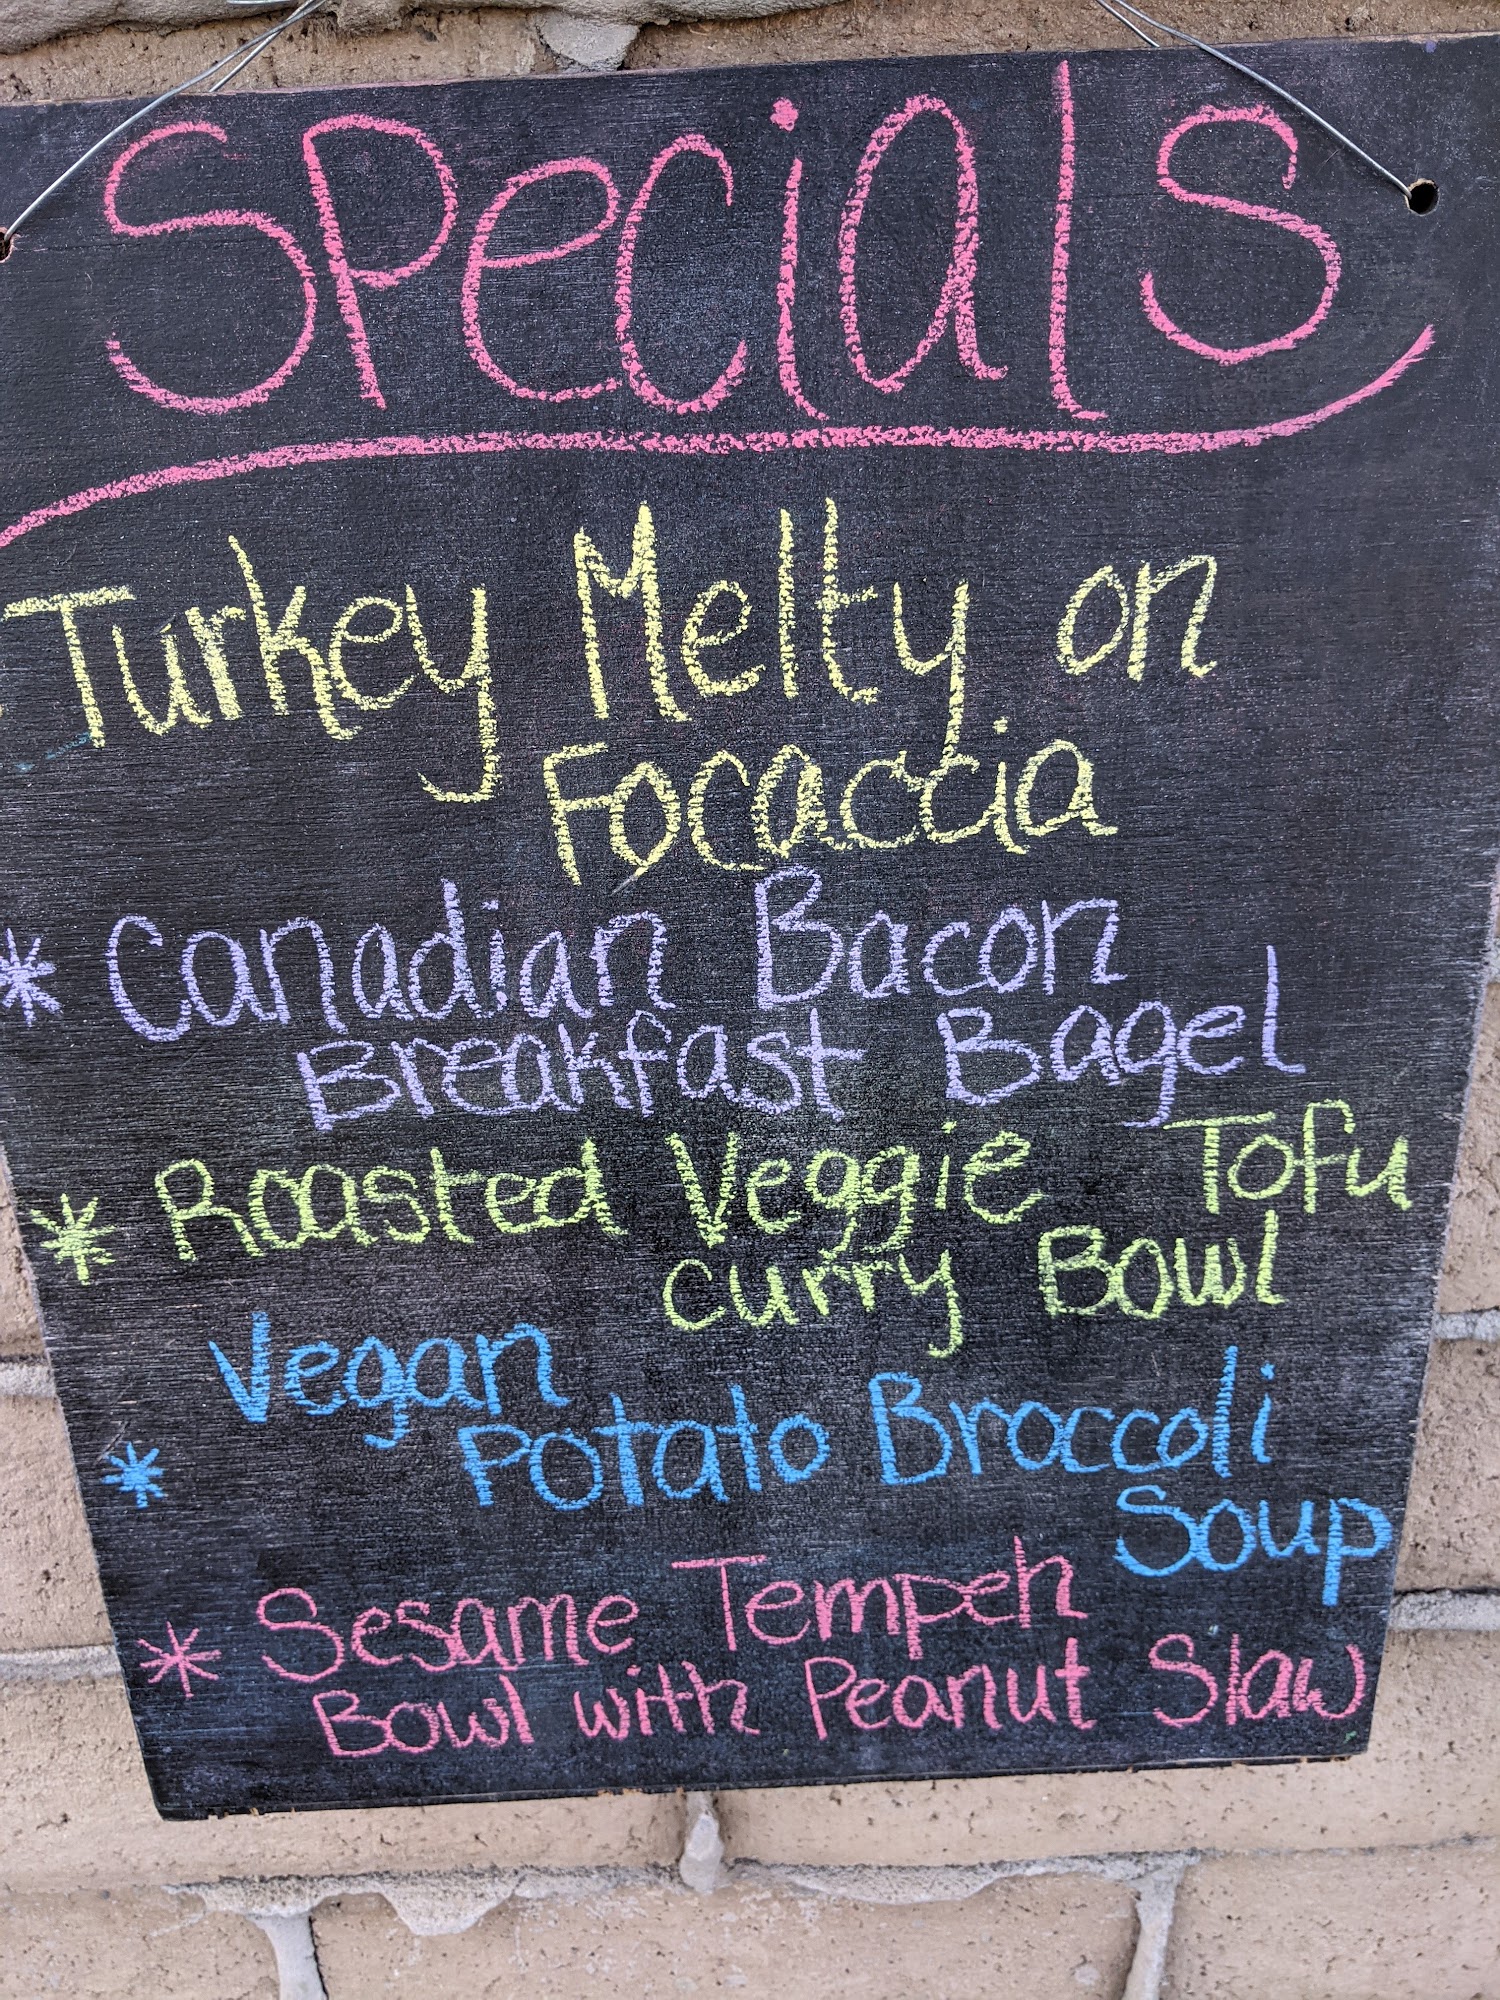 Specials
Turkey Melty on
Focaccia
* Canadian Bacon
Breakfast Bagel
* Roasted Veggie Tofu
curry Bowl
Vegan
* Potato Broccoli
Soup
* Sesame Tempeh
Bowl with Peanut Slaw